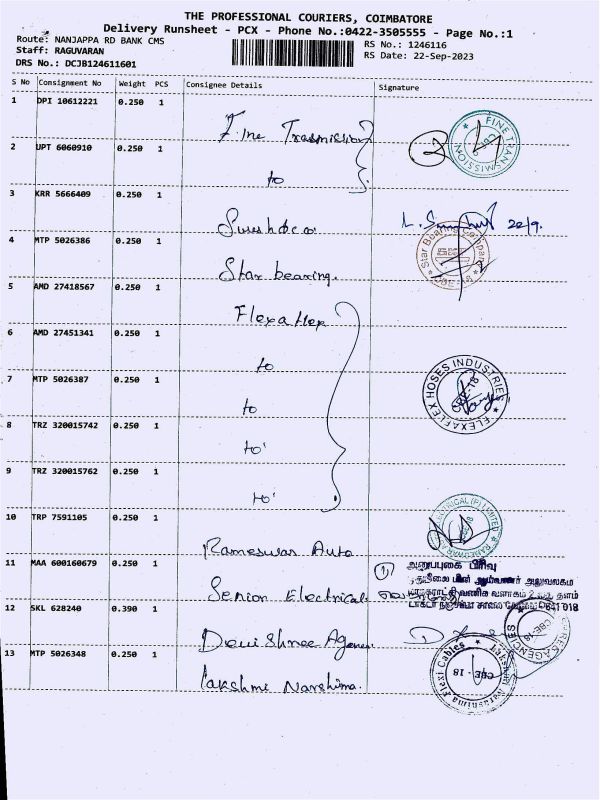 THE PROFESSIONAL COURIERS, COIMBATORE
Delivery Runsheet - PCX - Phone No.:0422-3505555 - Page No.:1
Route: NANJAPPA RD BANK CMS
RS No.: 1246116
Staff: RAGUVARAN
RS Date: 22-Sep-2023
DRS No.: DCJB124611601
S No Consignment No Weight PCS Consignee Details Signature
1 DPI 10612221 0.250 1
Fine Trasmistion
FINE TRANSMISSION
2 UPT 6060910 0.250 1
to
3 KRR 5666409 0.250 1
Suresh & co
22/9.
4 MTP 5026386 0.250 1
Star bearing.
Star Bearing Company
5 AMD 27418567 0.250 1
Flexaflex
6 AMD 27451341 0.250 1
to
7 MTP 5026387 0.250 1
to
ELEXAFLEX HOSES INDUSTRIES
CBE-18
8 TRZ 320015742 0.250 1
to
9 TRZ 320015762 0.250 1
to
10 TRP 7591105 0.250 1
Rameswar Auto
11 MAA 600160679 0.250 1
Senion Electrical
1
அனுப்புகை பிரிவு
12 SKL 628240 0.390 1
Devi Shree Agencies
CBE-18
13 MTP 5026348 0.250 1
Lakshmi Narshima.
Lakshmi Narasimma Flexi Cables
CBE - 18